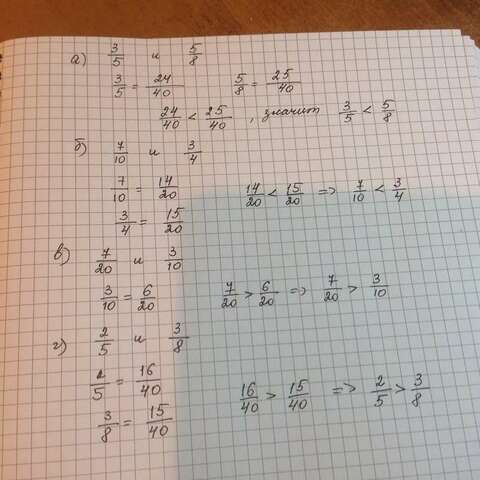 а) 3/5 и 5/8
3/5 = 24/40 5/8 = 25/40
24/40 < 25/40 , значит 3/5 < 5/8
б) 7/10 и 3/4
7/10 = 14/20 14/20 < 15/20 => 7/10 < 3/4
3/4 = 15/20
в) 7/20 и 3/10
3/10 = 6/20 7/20 > 6/20 => 7/20 > 3/10
г) 2/5 и 3/8
2/5 = 16/40 16/40 > 15/40 => 2/5 > 3/8
3/8 = 15/40